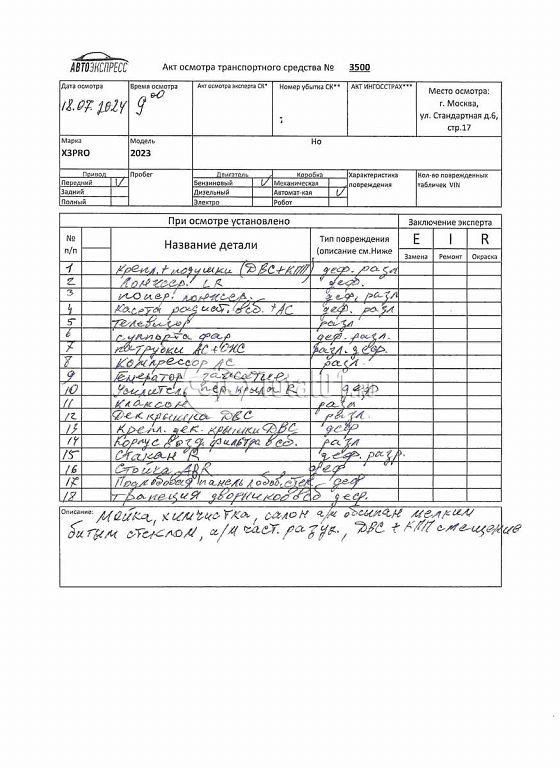 АВТОЭКСПРЕСС
Акт осмотра транспортного средства № 3500
Дата осмотра Время осмотра Акт осмотра эксперта СК* Номер убытка СК** АКТ ИНГОССТРАХ*** Место осмотра:
18.07.2024 9 00 г. Москва,
ул. Стандартная д.6,
стр.17
Марка Модель Но
X3PRO 2023
Привод Пробег Двигатель Коробка Характеристика повреждения Кол-во поврежденных табличек VIN
Передний V Бензиновый V Механическая
Задний Дизельный Автомат-кая V
Полный Электро Робот
При осмотре установлено Заключение эксперта
№ п/п Название детали Тип повреждения (описание см.Ниже E I R
Замена Ремонт Окраска
1 Крепл. + подушки (ДВС+КПП) деф. разл
2 Лонжер. LR деф.
3 попер. лонжер. деф, разл
4 Касета радиат. в сб. + АС деф. разл
5 Телевизор разл
6 суппорта фар деф. разл.
7 патрубки АС+ разл. деф.
8 Компрессор АС разл.
9 Генератор
10 Усилитель пер. крыла R деф
11 Клаксон разл
12 Дек крышка ДВС разл.
13 Крепл. дек. крышки ДВС деф
14 Корпус возд. фильтра в сб. разл
15 Стакан R деф. разр.
16 Стойка R деф
17 панель лобов. стек деф
18 Трапеция дворников деф.
Описание: Мойка, химчистка, салон а/м обсыпан мелким
битым стеклом, а/м част. разук., ДВС + КПП смещение